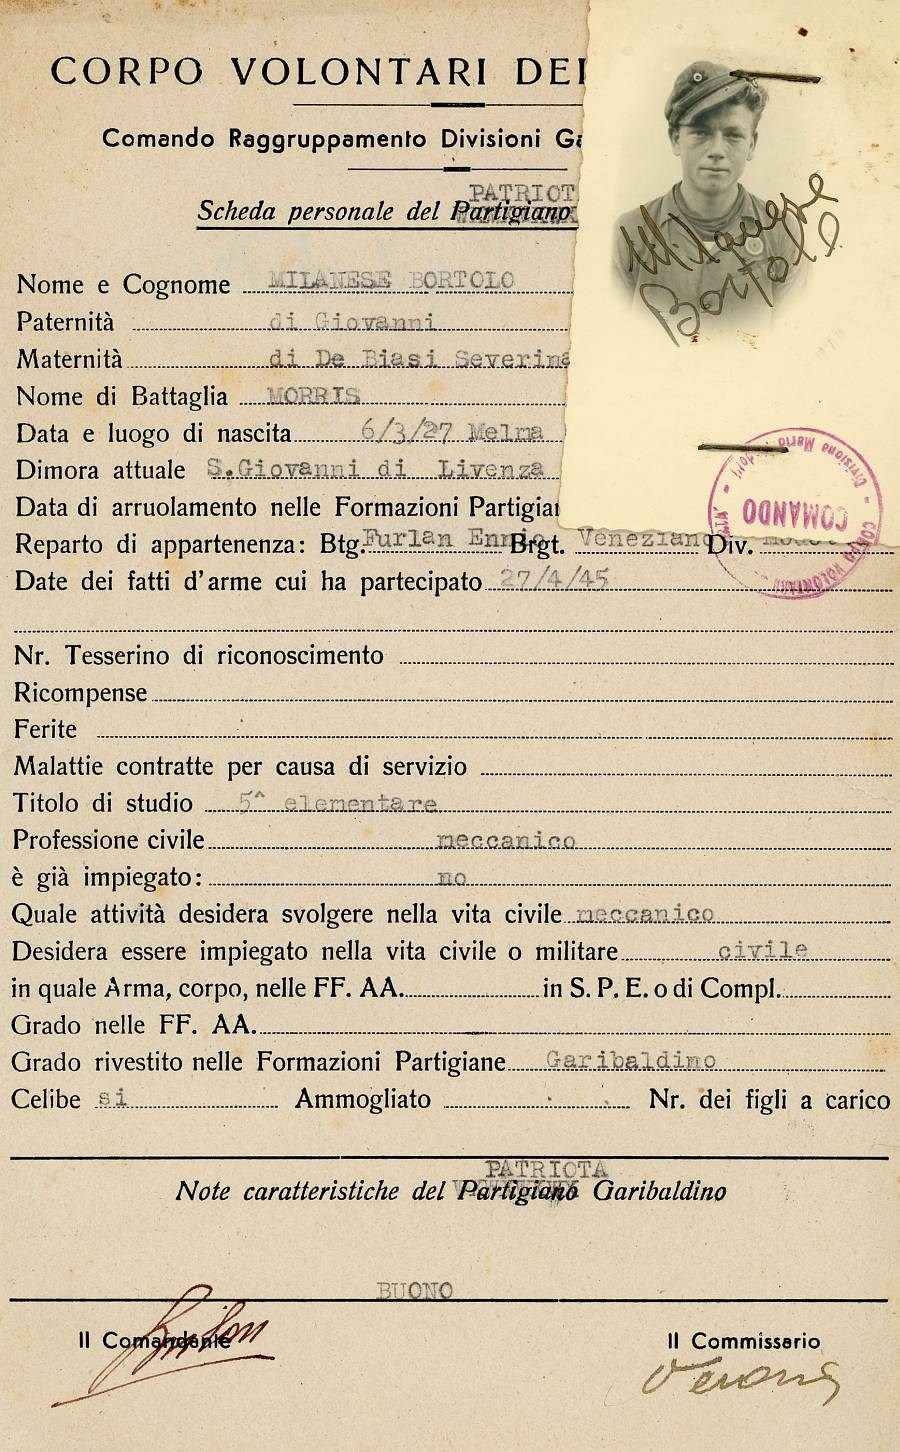 CORPO VOLONTARI DEI
Comando Raggruppamento Divisioni Ga
PATRIOT
Scheda personale del Partigiano
Nome e Cognome MILANESE BORTOLO
Paternità di Giovanni
Maternità di De Biasi Severina
Nome di Battaglia MORRIS
Data e luogo di nascita 6/3/27 Melma
Dimora attuale S.Giovanni di Livenza
Data di arruolamento nelle Formazioni Partigian
Reparto di appartenenza: Btg. Furlan Ennio Brgt. Veneziano Div.
Date dei fatti d'arme cui ha partecipato 27/4/45
Nr. Tesserino di riconoscimento
Ricompense
Ferite
Malattie contratte per causa di servizio
Titolo di studio 5^ elementare
Professione civile meccanico
è già impiegato: no
Quale attività desidera svolgere nella vita civile meccanico
Desidera essere impiegato nella vita civile o militare civile
in quale Arma, corpo, nelle FF. AA. in S. P. E. o di Compl.
Grado nelle FF. AA.
Grado rivestito nelle Formazioni Partigiane Garibaldino
Celibe si Ammogliato Nr. dei figli a carico
PATRIOTA
Note caratteristiche del Partigiano Garibaldino
BUONO
Il Comandante
Il Commissario
Verona
Milanese
Bortolo
COMANDO
CORPO VOLONTARI
Divisione Mario